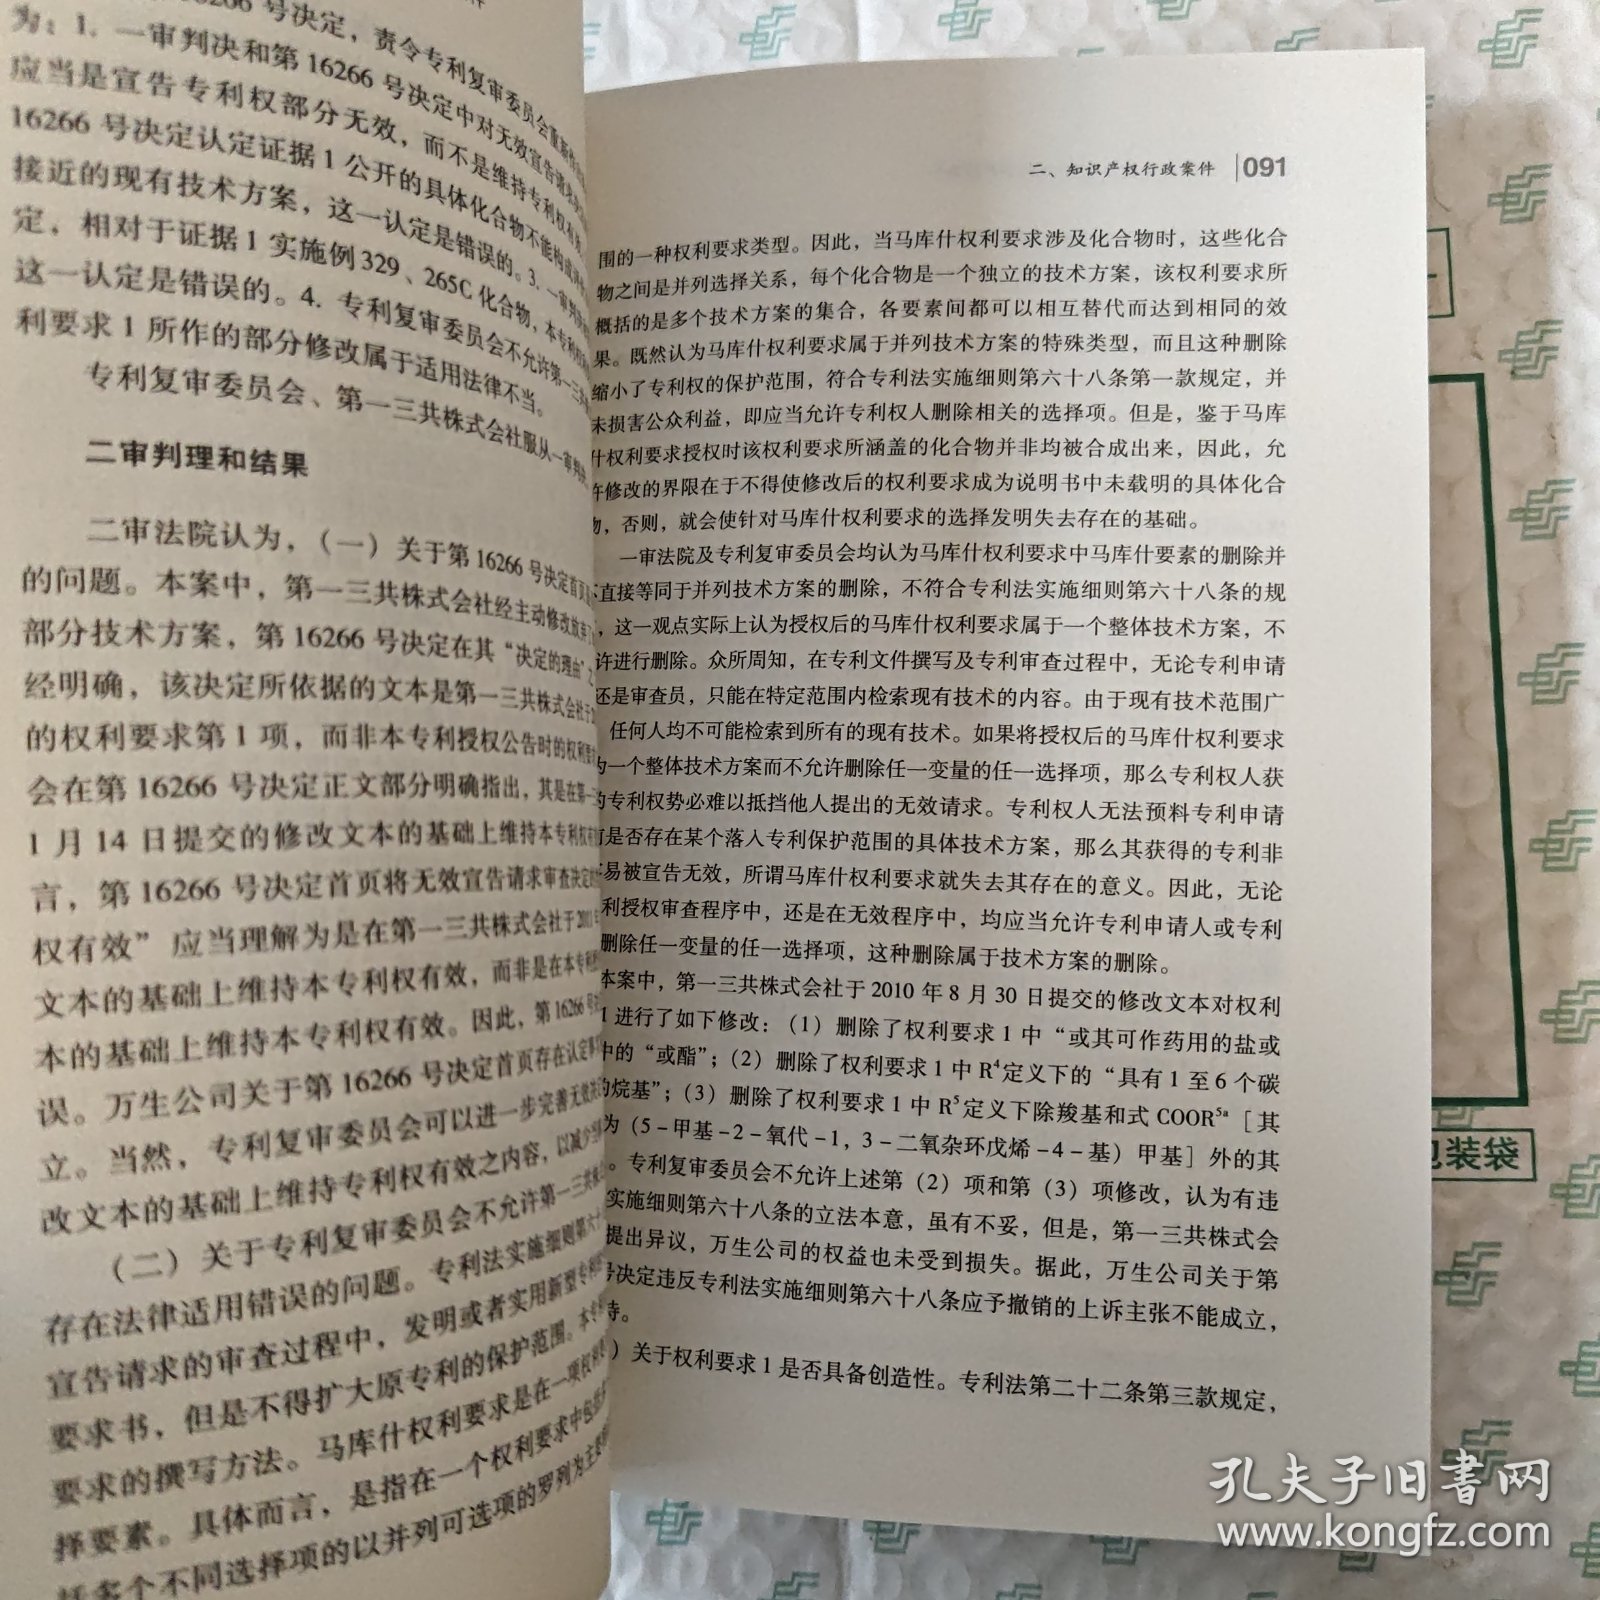 号决定，责令专利复审委员会重新
为：1. 一审判决和第 16266 号决定中对无效宣告请求
应当是宣告专利权部分无效，而不是维持专利权有效
16266 号决定认定证据 1 公开的具体化合物不能构成
接近的现有技术方案，这一认定是错误的。3. 一审判
定，相对于证据 1 实施例 329、265C 化合物，本专利权
这一认定是错误的。4. 专利复审委员会不允许第一三共
利要求 1 所作的部分修改属于适用法律不当。
专利复审委员会、第一三共株式会社服从一审判决。
二审判理和结果
二审法院认为，（一）关于第 16266 号决定首页
的问题。本案中，第一三共株式会社经主动修改放弃了
部分技术方案，第 16266 号决定在其“决定的理由”
经明确，该决定所依据的文本是第一三共株式会社于
的权利要求第 1 项，而非本专利授权公告时的权利要
会在第 16266 号决定正文部分明确指出，其是在第一三
1 月 14 日提交的修改文本的基础上维持本专利权有
言，第 16266 号决定首页将无效宣告请求审查决定
权有效”应当理解为是在第一三共株式会社于 2011 年
文本的基础上维持本专利权有效，而非是在本专利
本的基础上维持本专利权有效。因此，第 16266 号
误。万生公司关于第 16266 号决定首页存在认定事
立。当然，专利复审委员会可以进一步完善无效决
改文本的基础上维持专利权有效之内容，以减少
（二）关于专利复审委员会不允许第一三共株
存在法律适用错误的问题。专利法实施细则第六十
宣告请求的审查过程中，发明或者实用新型专利
要求书，但是不得扩大原专利的保护范围。本专
要求的撰写方法。马库什权利要求是在一项权利要
择要素。具体而言，是指在一个权利要求中包括
括多个不同选择项的以并列可选项的罗列为主
二、知识产权行政案件 091
围的一种权利要求类型。因此，当马库什权利要求涉及化合物时，这些化合
物之间是并列选择关系，每个化合物是一个独立的技术方案，该权利要求所
概括的是多个技术方案的集合，各要素间都可以相互替代而达到相同的效
果。既然认为马库什权利要求属于并列技术方案的特殊类型，而且这种删除
缩小了专利权的保护范围，符合专利法实施细则第六十八条第一款规定，并
未损害公众利益，即应当允许专利权人删除相关的选择项。但是，鉴于马库
什权利要求授权时该权利要求所涵盖的化合物并非均被合成出来，因此，允
许修改的界限在于不得使修改后的权利要求成为说明书中未载明的具体化合
物，否则，就会使针对马库什权利要求的选择发明失去存在的基础。
一审法院及专利复审委员会均认为马库什权利要求中马库什要素的删除并
不直接等同于并列技术方案的删除，不符合专利法实施细则第六十八条的规
，这一观点实际上认为授权后的马库什权利要求属于一个整体技术方案，不
许进行删除。众所周知，在专利文件撰写及专利审查过程中，无论专利申请
还是审查员，只能在特定范围内检索现有技术的内容。由于现有技术范围广
任何人均不可能检索到所有的现有技术。如果将授权后的马库什权利要求
为一个整体技术方案而不允许删除任一变量的任一选择项，那么专利权人获
的专利权势必难以抵挡他人提出的无效请求。专利权人无法预料专利申请
前是否存在某个落入专利保护范围的具体技术方案，那么其获得的专利非
易被宣告无效，所谓马库什权利要求就失去其存在的意义。因此，无论
利授权审查程序中，还是在无效程序中，均应当允许专利申请人或专利
删除任一变量的任一选择项，这种删除属于技术方案的删除。
本案中，第一三共株式会社于 2010 年 8 月 30 日提交的修改文本对权利
1 进行了如下修改：（1）删除了权利要求 1 中“或其可作药用的盐或
中的“或酯”；（2）删除了权利要求 1 中 R⁴定义下的“具有 1 至 6 个碳
的烷基”；（3）删除了权利要求 1 中 R⁵定义下除羧基和式 COOR⁵ᵃ［其
为（5－甲基－2－氧代－1，3－二氧杂环戊烯－4－基）甲基］外的其
。专利复审委员会不允许上述第（2）项和第（3）项修改，认为有违
实施细则第六十八条的立法本意，虽有不妥，但是，第一三共株式会
提出异议，万生公司的权益也未受到损失。据此，万生公司关于第
号决定违反专利法实施细则第六十八条应予撤销的上诉主张不能成立，
持。
）关于权利要求 1 是否具备创造性。专利法第二十二条第三款规定，
包装袋
孔夫子旧书网
www.kongfz.com